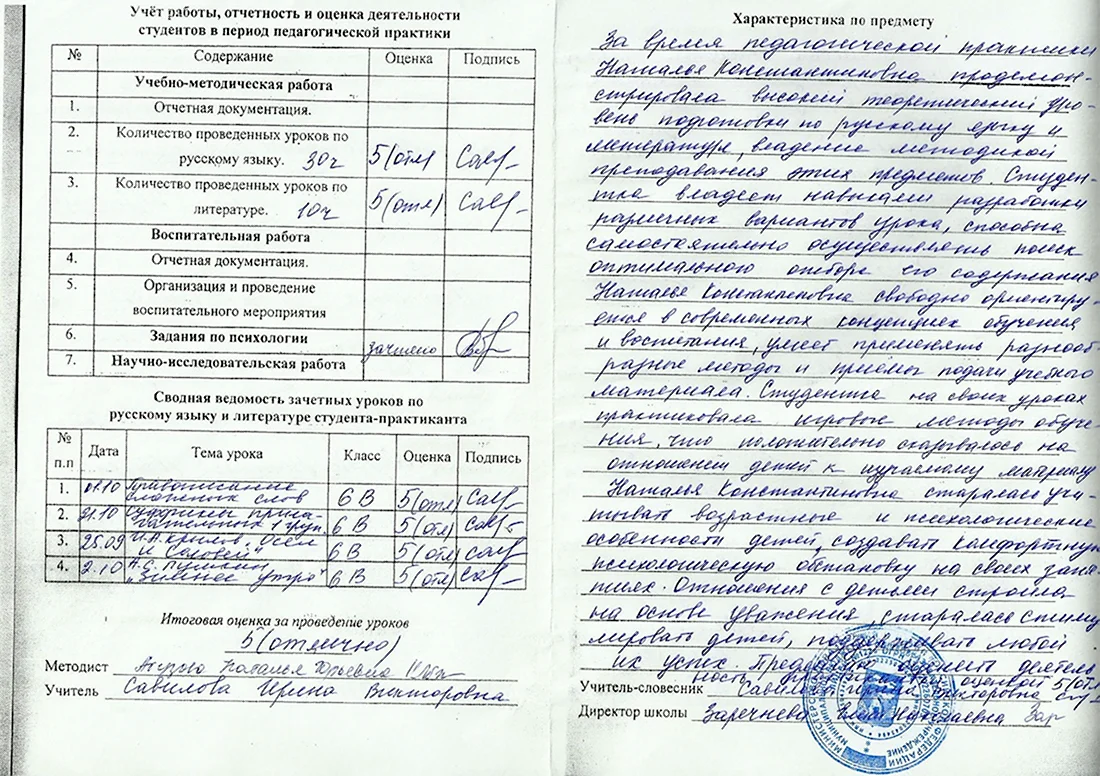 Учёт работы, отчетность и оценка деятельности
студентов в период педагогической практики
№ Содержание Оценка Подпись
Учебно-методическая работа
1. Отчетная документация.
2. Количество проведенных уроков по
русскому языку. 30ч 5(отл)
3. Количество проведенных уроков по
литературе. 10ч 5(отл)
Воспитательная работа
4. Отчетная документация.
5. Организация и проведение
воспитательного мероприятия
6. Задания по психологии зачтено
7. Научно-исследовательская работа
Сводная ведомость зачетных уроков по
русскому языку и литературе студента-практиканта
№ п.п Дата Тема урока Класс Оценка Подпись
1. Правописание
сложных слов 6 В 5(отл)
2. Суффиксы прила-
гательных 6 В 5(отл)
3. 25.09 И.А.Крылов „Осел
и Соловей" 6 В 5(отл)
4. 2.10 А.С. Пушкин
„Зимнее утро" 6 В 5(отл)
Итоговая оценка за проведение уроков
5(отлично)
Методист Наталья Юрьевна
Учитель Савилова Ирина Викторовна
Характеристика по предмету
За время педагогической практики
Наталья Константиновна продемон-
стрировала высокий теоретический уро-
вень подготовки по русскому языку и
литературе, владение методикой
преподавания этих предметов. Студен-
тка владеет навыками разработки
различных вариантов урока, способна
самостоятельно осуществлять поиск
оптимального отбора его содержания
Наталья Константиновна свободно ориентиру-
ется в современных концепциях обучения
и воспитания, умеет применять разнооб-
разные методы и приёмы подачи учебного
материала. Студентка на своих уроках
практиковала игровые методы обуче-
ния, что положительно сказывалось на
отношении детей к изучаемому материалу
Наталья Константиновна старалась учи-
тывать возрастные и психологические
особенности детей, создавать комфортную
психологическую обстановку на своих заня-
тиях. Отношения с детьми строила
на основе уважения, старалась стиму
лировать детей, любой
их успех. оценить деятель
ность оценкой 5(отл
Учитель-словесник
Директор школы Заречнева